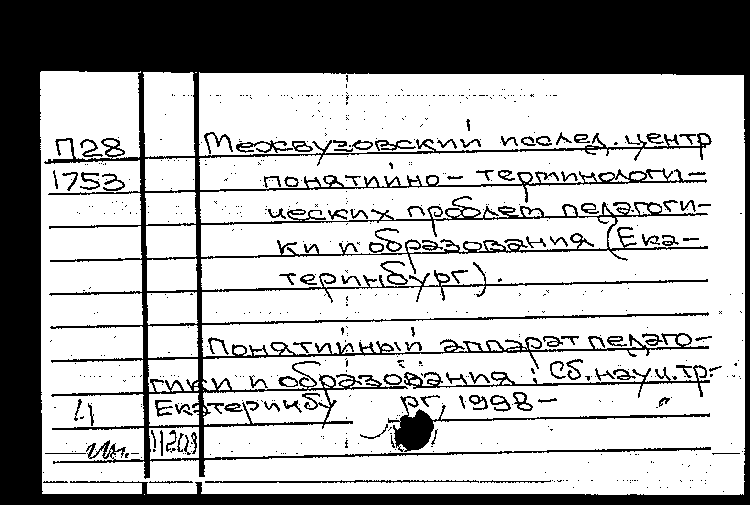 П28 Межвузовский исслед. центр
1753 понятийно-терминологи-
ческих проблем педагоги-
ки и образования (Ека-
теринбург).
Понятийный аппарат педаго-
гики и образования : Сб. науч. тр.-
Ч Екатеринбу рг, 1998 -
11203